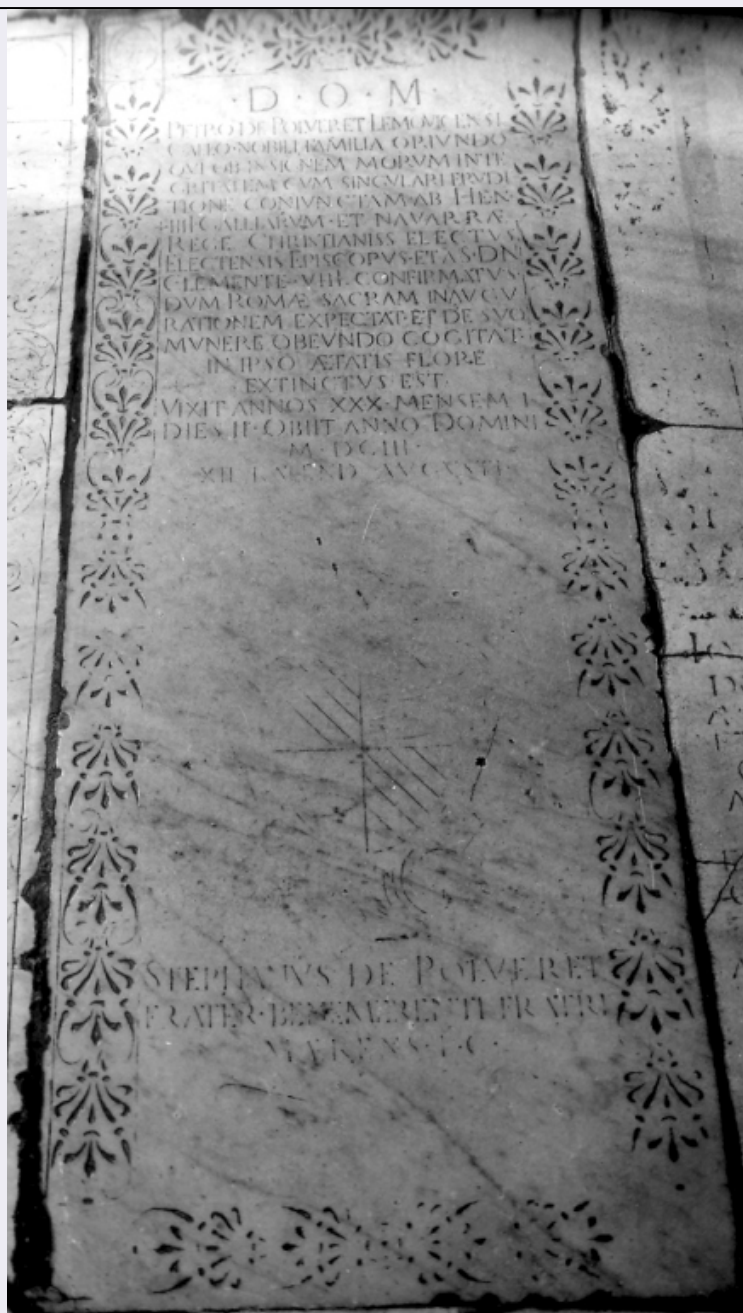 · D · O · M ·
PETRO DE POLVERET LEMOVICENSI
GALLO NOBILI FAMILIA ORIVNDO
QVI OB INSIGNEM MORVM INTE
GRITATEM CVM SINGVLARI ERVDI
TIONE CONIVNCTAM AB HEN·
IIII GALLIARVM · ET NAVARRÆ
REGE CHRISTIANISS ELECTVS
ELECTENSIS EPISCOPVS · ET A S · D N
CLEMENTE · VIII · CONFIRMATVS ·
DVM ROMÆ SACRAM INAVGV
RATIONEM EXPECTAT · ET DE SVO
MVNERE OBEVNDO COGITAT ·
IN IPSO ÆTATIS FLORE
EXTINCTVS EST ·
VIXIT ANNOS XXX · MENSEM I
DIES II · OBIIT ANNO DOMINI
M · DCIII ·
XII KALEND AVGVSTI
STEPHANVS DE POLVERET
FRATER · BENEMERENTI FRATRI
MÆRENS · P · C ·